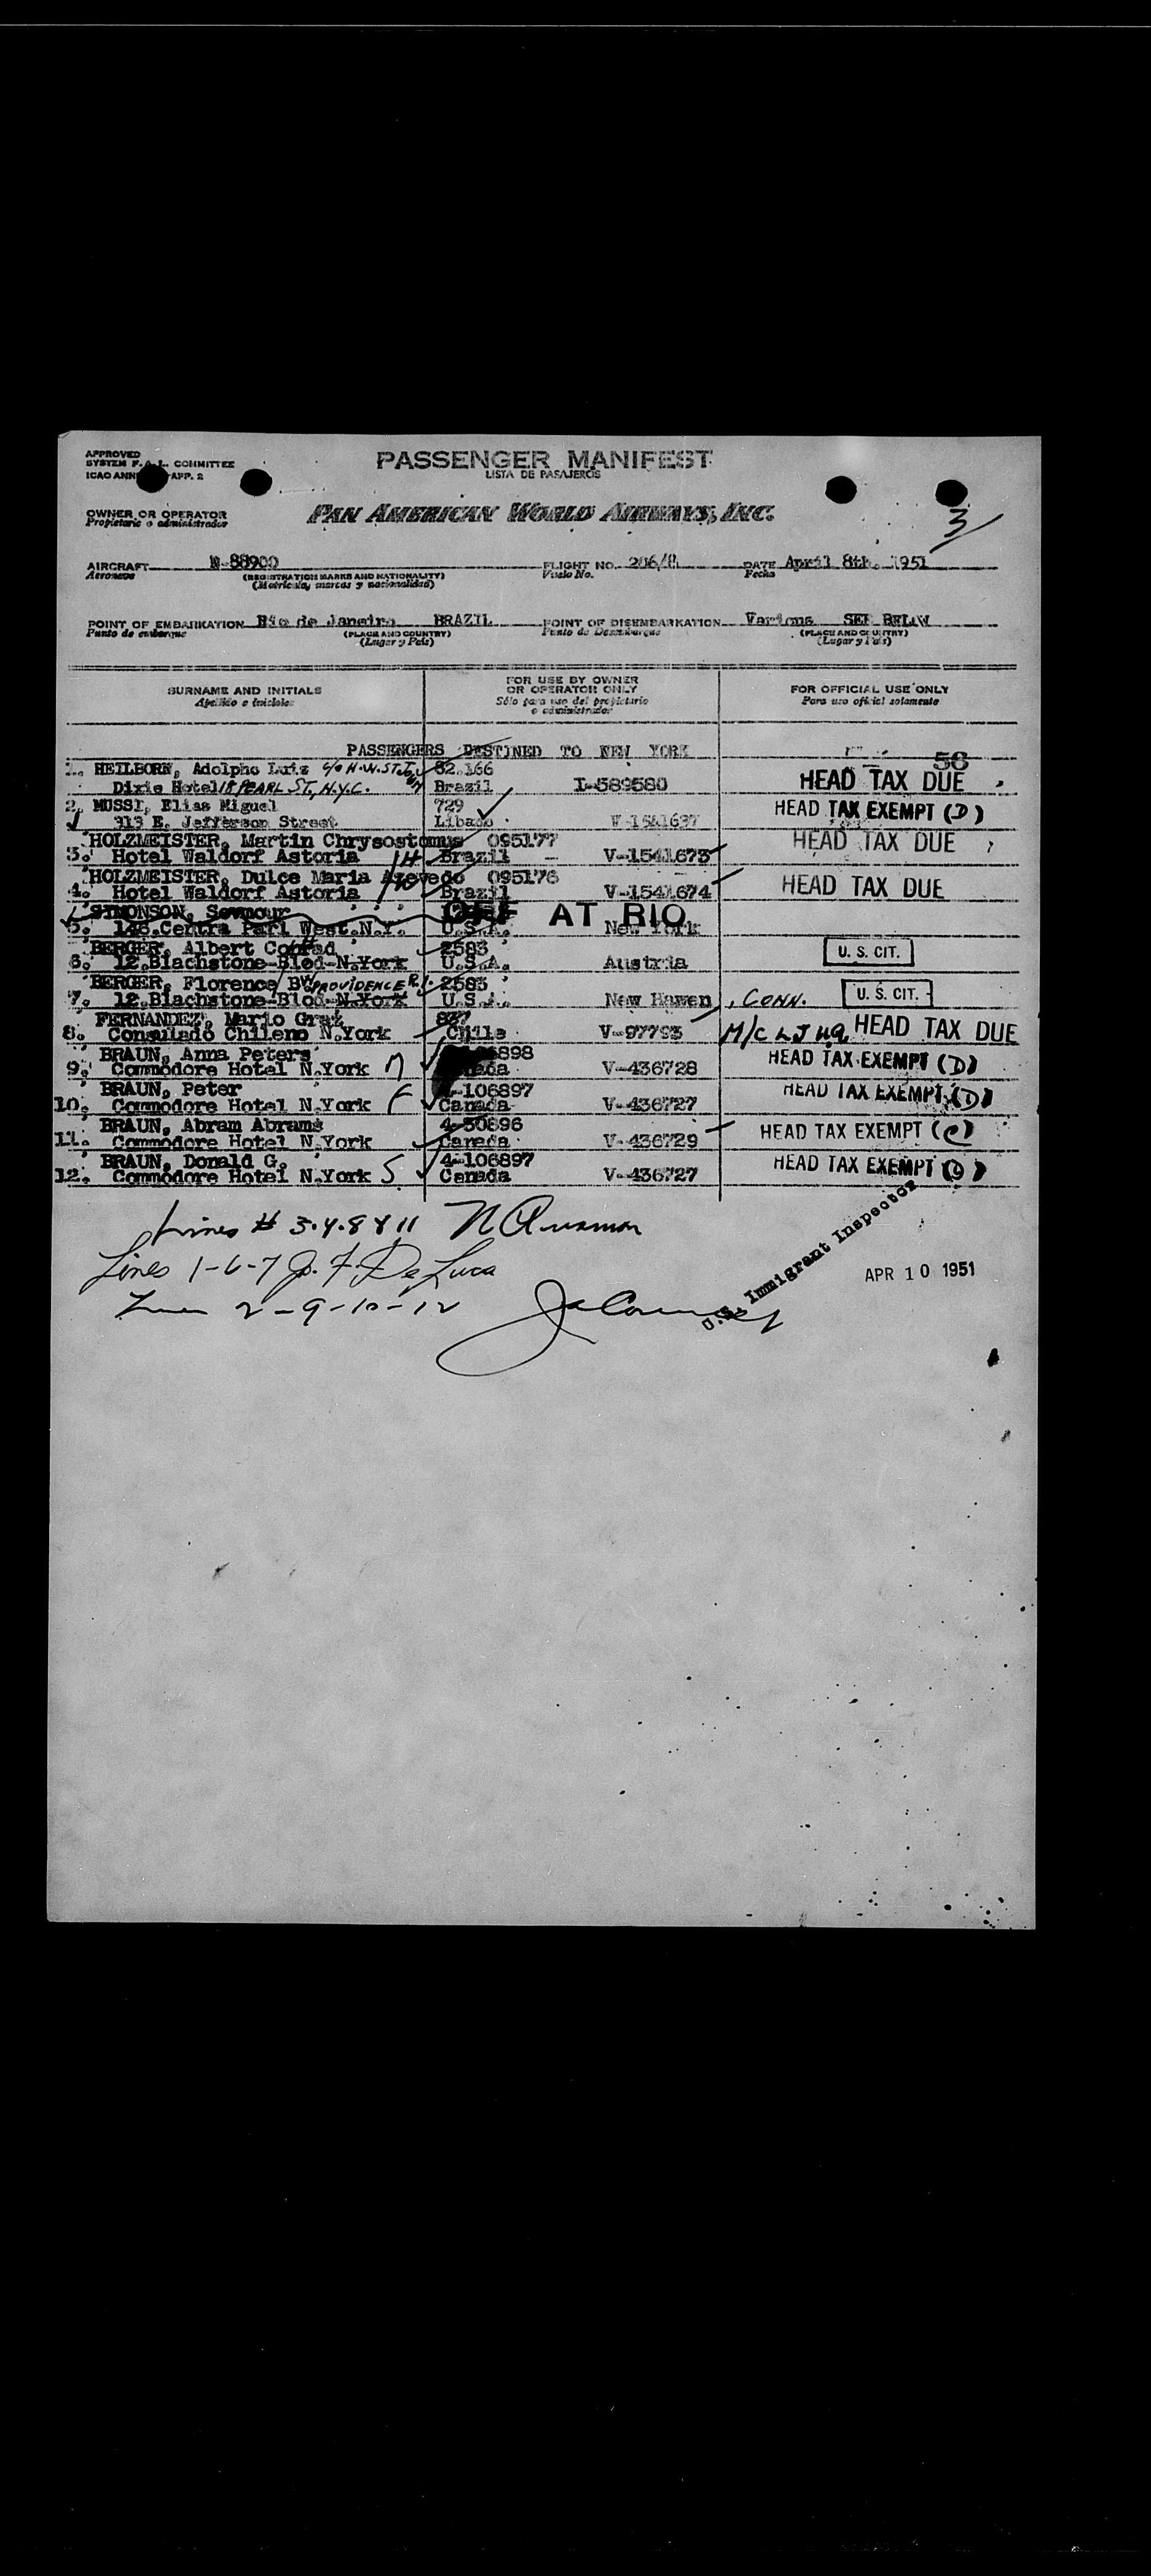 APPROVED
SYSTEM F.A.L. COMMITTEE
ICAO ANN APP. 2
PASSENGER MANIFEST
LISTA DE PASAJEROS
OWNER OR OPERATOR
Propietario o administrador
PAN AMERICAN WORLD AIRWAYS, INC.
3
AIRCRAFT N-88900 FLIGHT NO. 206/8 DATE April 8th. 1951
Aeronave (REGISTRATION MARKS AND NATIONALITY) Vuelo No. Fecha
(Matriculas, marcas y nacionalidad)
POINT OF EMBARKATION Rio de Janeiro BRAZIL POINT OF DISEMBARKATION Various SEE BELOW
Punto de embarque (PLACE AND COUNTRY) Punto de Desembarque (PLACE AND COUNTRY)
(Lugar y País) (Lugar y País)
SURNAME AND INITIALS FOR USE BY OWNER OR OPERATOR ONLY FOR OFFICIAL USE ONLY
Apellido e iniciales Sólo para uso del propietario o administrador Para uso oficial solamente
PASSENGERS DESTINED TO NEW YORK
56
1. HEILBORN, Adolpho Luiz c/o H.W. ST. 82.166
Dixie Hotel PEARL ST., N.Y.C. Brazil I-589580 HEAD TAX DUE
2. MUSSI, Elias Miguel 729 HEAD TAX EXEMPT (D)
313 E. Jefferson Street Libano V-1541637
HOLZMEISTER, Martin Chrysostomus 095177 HEAD TAX DUE
3. Hotel Waldorf Astoria Brazil V-1541673
HOLZMEISTER, Dulce Maria Azevedo 095176
4. Hotel Waldorf Astoria Brazil V-1541674 HEAD TAX DUE
SIMONSON, Seymour OFF AT RIO
5. 146.Centra Parl West.N.Y. U.S.A. New York
BERGER, Albert Conrad 2583 U. S. CIT.
6. 12.Blachstone-Blod-N.York U.S.A. Austria
BERGER, Florence B PROVIDENCE R.I. 2583
7. 12.Blachstone-Blod-N.York U.S.A. New Hawen, CONN. U. S. CIT.
FERNANDEZ, Mario Grat 837
8. Consulado Chileno N.York Chile V-97793 M/C HEAD TAX DUE
BRAUN, Anna Peters 898 HEAD TAX EXEMPT (D)
9. Commodore Hotel N.York M V-436728
BRAUN, Peter 4-106897 HEAD TAX EXEMPT (D)
10. Commodore Hotel N.York F Canada V-436727
BRAUN, Abram Abrams 4-50896
11. Commodore Hotel N.York Canada V-436729 HEAD TAX EXEMPT (C)
BRAUN, Donald G. 4-106897 HEAD TAX EXEMPT (D)
12. Commodore Hotel N.York S Canada V-436727
Lines # 3.4.8 & 11
Lines 1-6-7 Jo. F. De Luca
U.S. Immigrant Inspector
APR 10 1951
2-9-10-12